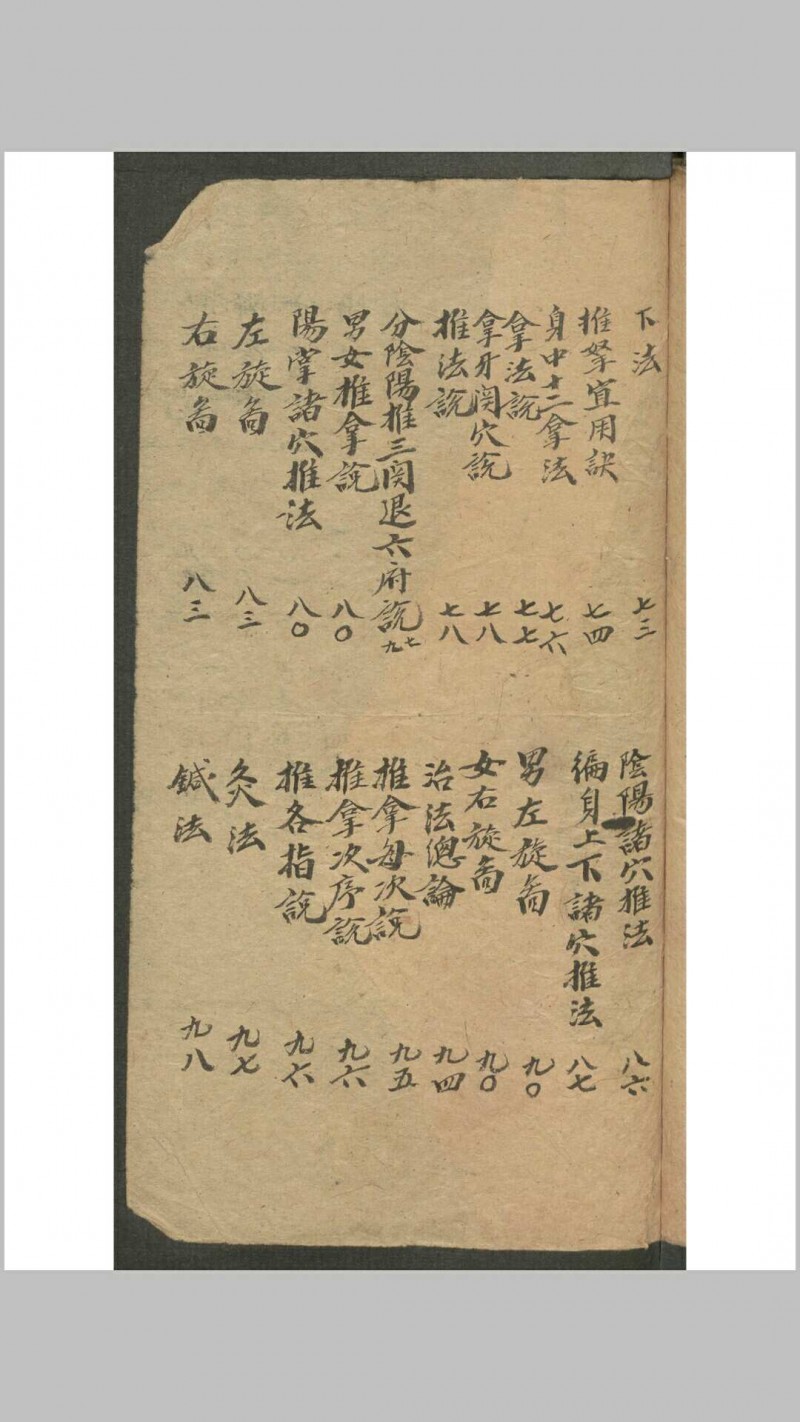 下法 七三
推拏宜用訣 七四
身中十二拿法 七六
拿法說 七七
拿牙関穴說 七八
推法說 七八
分陰陽推三関退六府說 七九
男女推拿說 八〇
陽掌諸穴推法 八〇
左旋啚 八三
右旋啚 八三
陰陽諸穴推法 八六
徧身上下諸穴推法 八七
男左旋啚 九〇
女右旋啚 九〇
治法總論 九四
推拿每次說 九五
推拿次序說 九六
推各指說 九六
灸法 九七
鍼法 九八